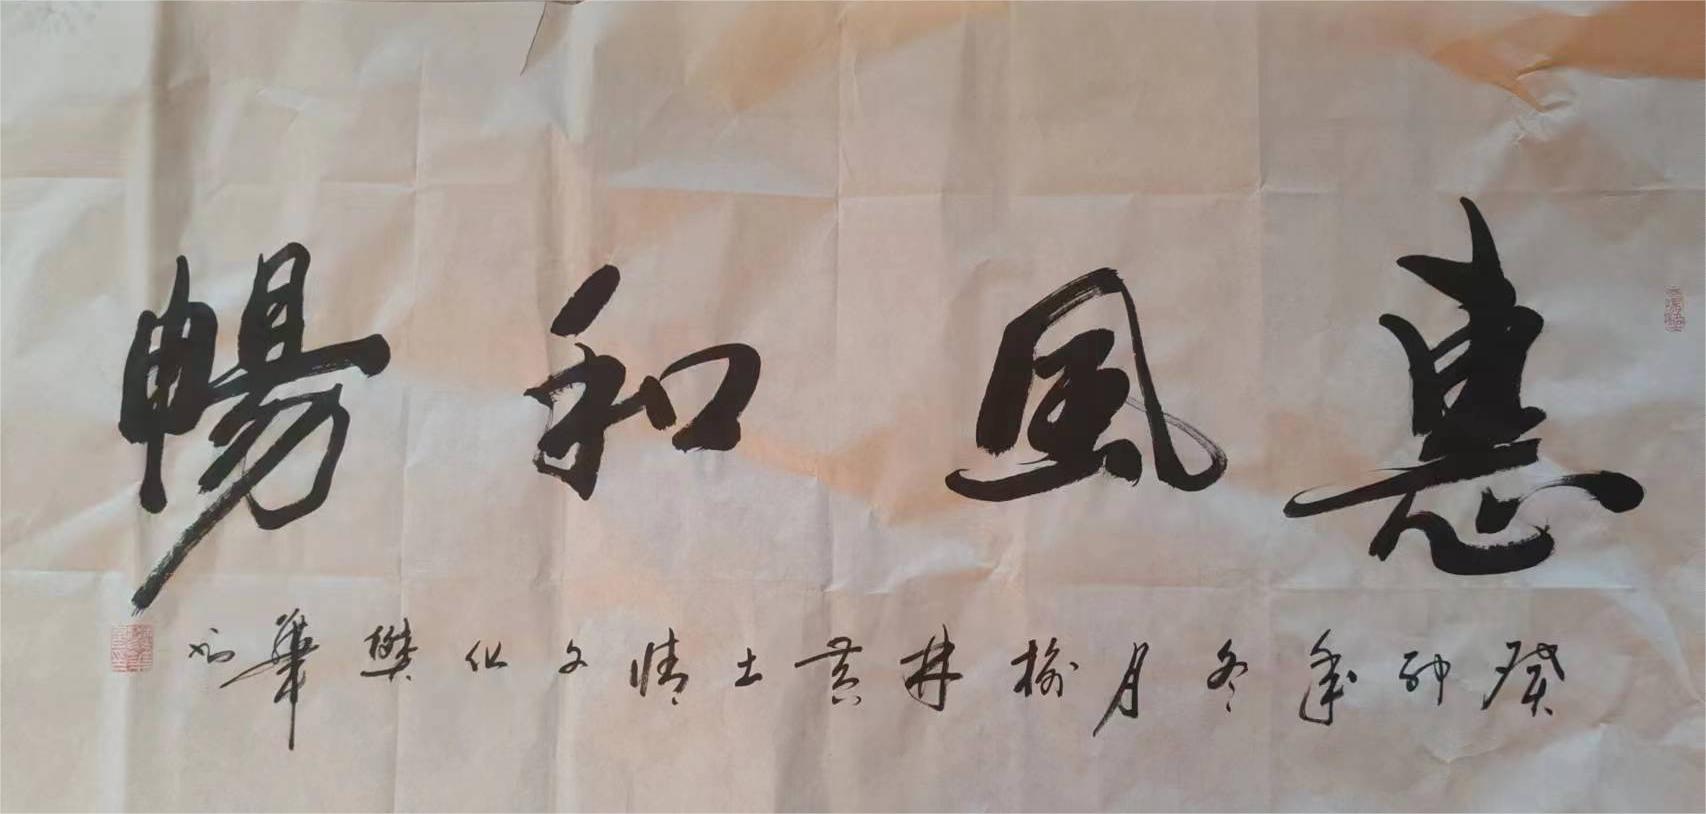 惠風和暢
癸卯年冬月榆林黄土情文化樊華